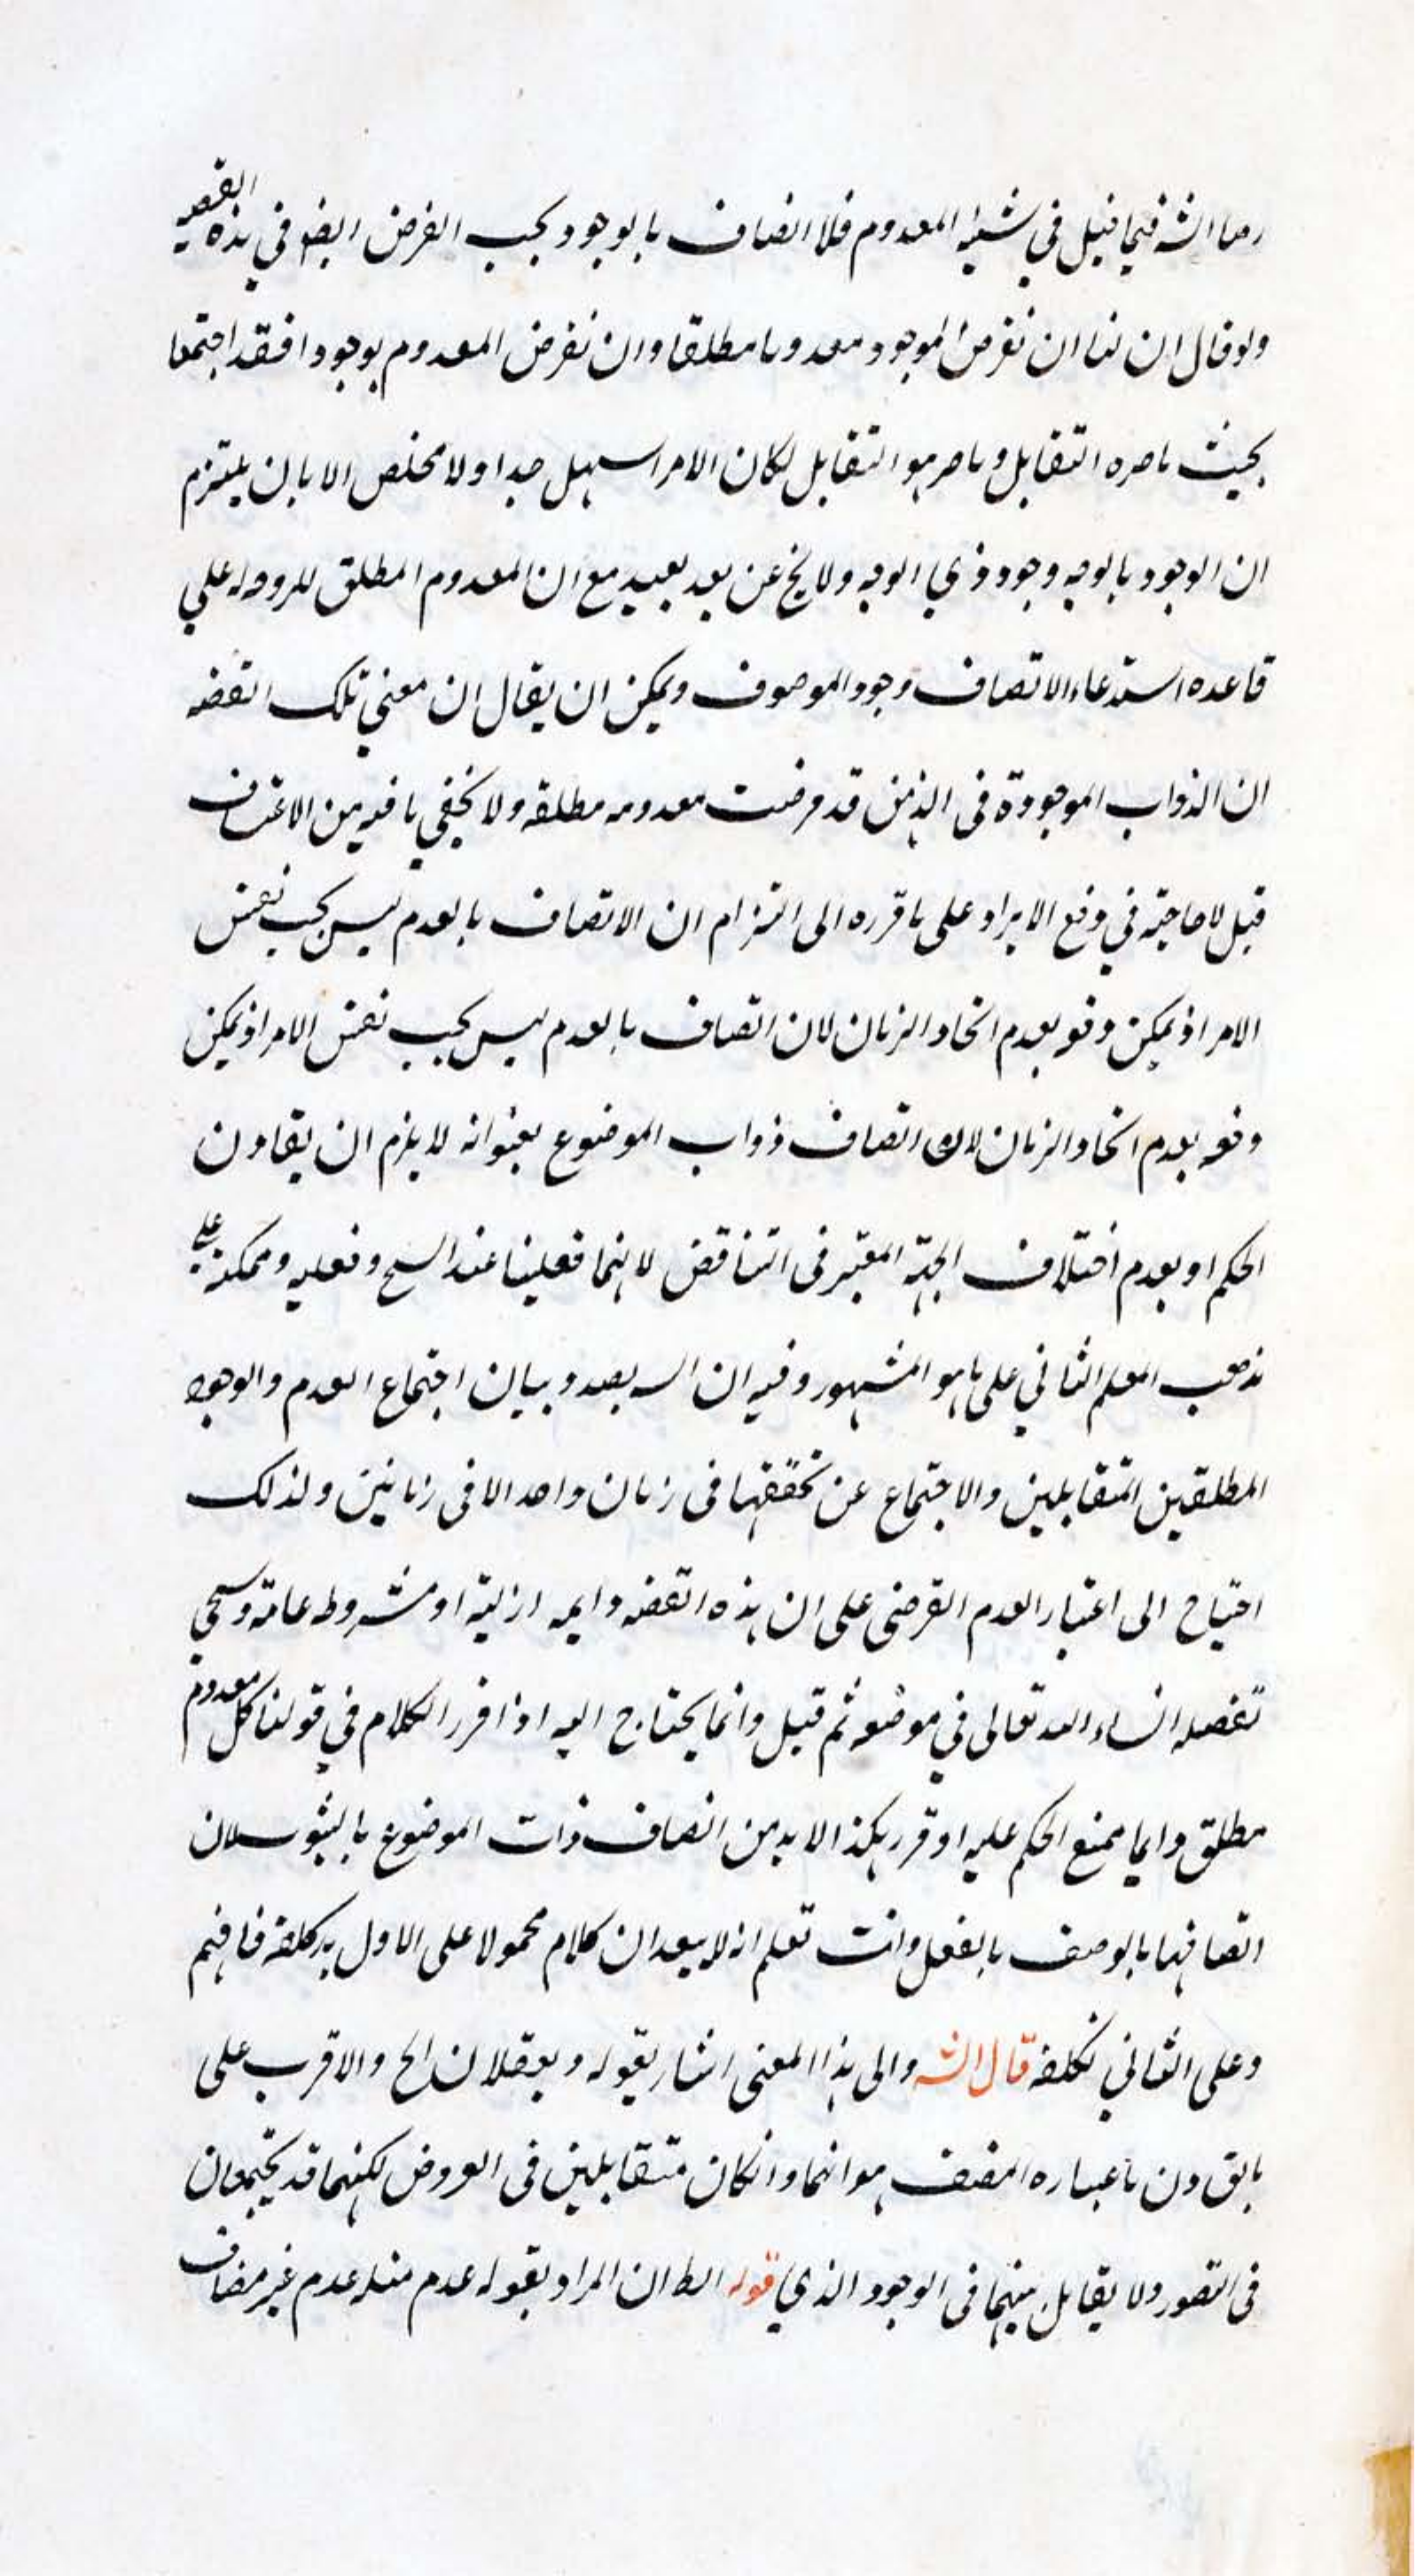 فيما قيل في شيئية المعدوم فلا اتصاف بالوجود بحسب الفرض ايضو في هذه القضية
ولو قال ان لنا ان نفرض الموجود معدوما مطلقا وان نفرض المعدوم موجودا فقد اجتمعا
بحيث التقابل و التقابل لكان الامر اسهل جدا ولا مخلص الا بان يلتزم
ان الوجود بالوجه وجود ذي الوجه ولا يخ عن بعد بعيد مع ان المعدوم المطلق على
قاعده استدعاء الاتصاف وجود الموصوف ويمكن ان يقال ان معنى تلك القضه
ان الذوات الموجودة فى الذهن قد فرضت معدومه مطلقه ولا يخفي ما فيه من الاعتراف
قيل لا حاجة في دفع الايراد على ما قرره الى التزام ان الاتصاف بالعدم ليس بحسب نفس
الامر اذ يمكن دفعه بعدم اتحاد الزمان لان اتصاف بالعدم ليس بحسب نفس الامر اذ يمكن
دفعه بعدم اتحاد الزمان لان اتصاف ذوات الموضوع بعنوانه لا يلزم ان يقارن
الحكم او بعدم اختلاف الجهة المعتبر فى التناقض لانهما فعليتا عند الشيخ وفعليه وممكنة على
مذهب المعلم الثاني على ما هو المشهور وفيه ان بصدد بيان اجتماع العدم والوجود
المطلقين المتقابلين والاجتماع عن تحققهما فى زمان واحد لا فى زمانين ولذلك
احتياج الى اعتبار العدم الفرضى على ان هذه القضه دايمه ازلية او مشروطه عامة وسيجي
تفصيله انشاء الله تعالى في موضعه ثم قيل وانما يحتاج اليه اذا قرر الكلام في قولنا كل معدوم
مطلق دايما يمتنع الحكم عليه او قرر هكذا لا بد من اتصاف ذات الموضوع لان
اتصافها بالوصف بالفعل وانت تعلم انه لا يبعد ان كلام محمولا على الاول كلفه فافهم
وعلى الثاني تكلفه قال الش والى هذا المعنى اشار بقوله ويعقلان الخ والاقرب على
هو انهما وانكان متقابلين فى العروض لكنهما قد يجتمعان
فى التصور ولا يقابل بينهما فى الوجود الذي قوله الظ ان المراد بقوله عدم مثله عدم غير مضاف